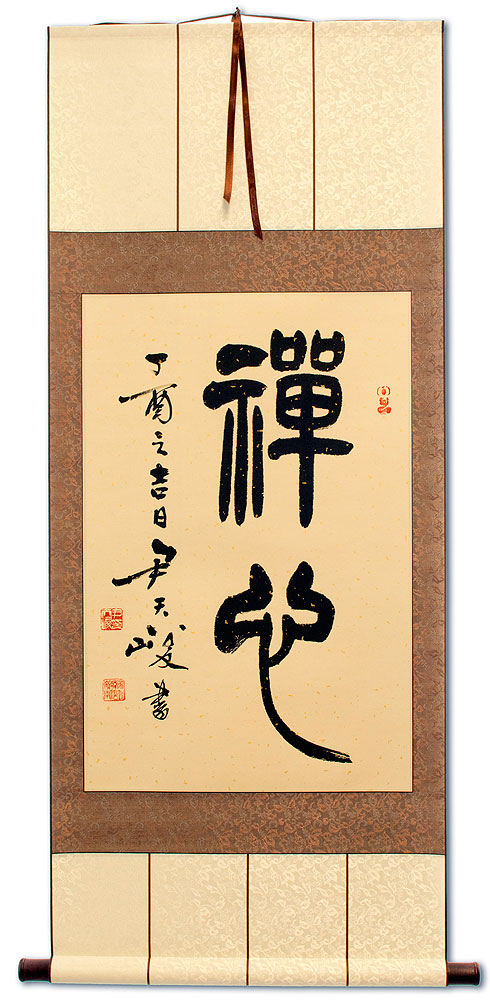 禪心
丁酉之吉日尹天峻書